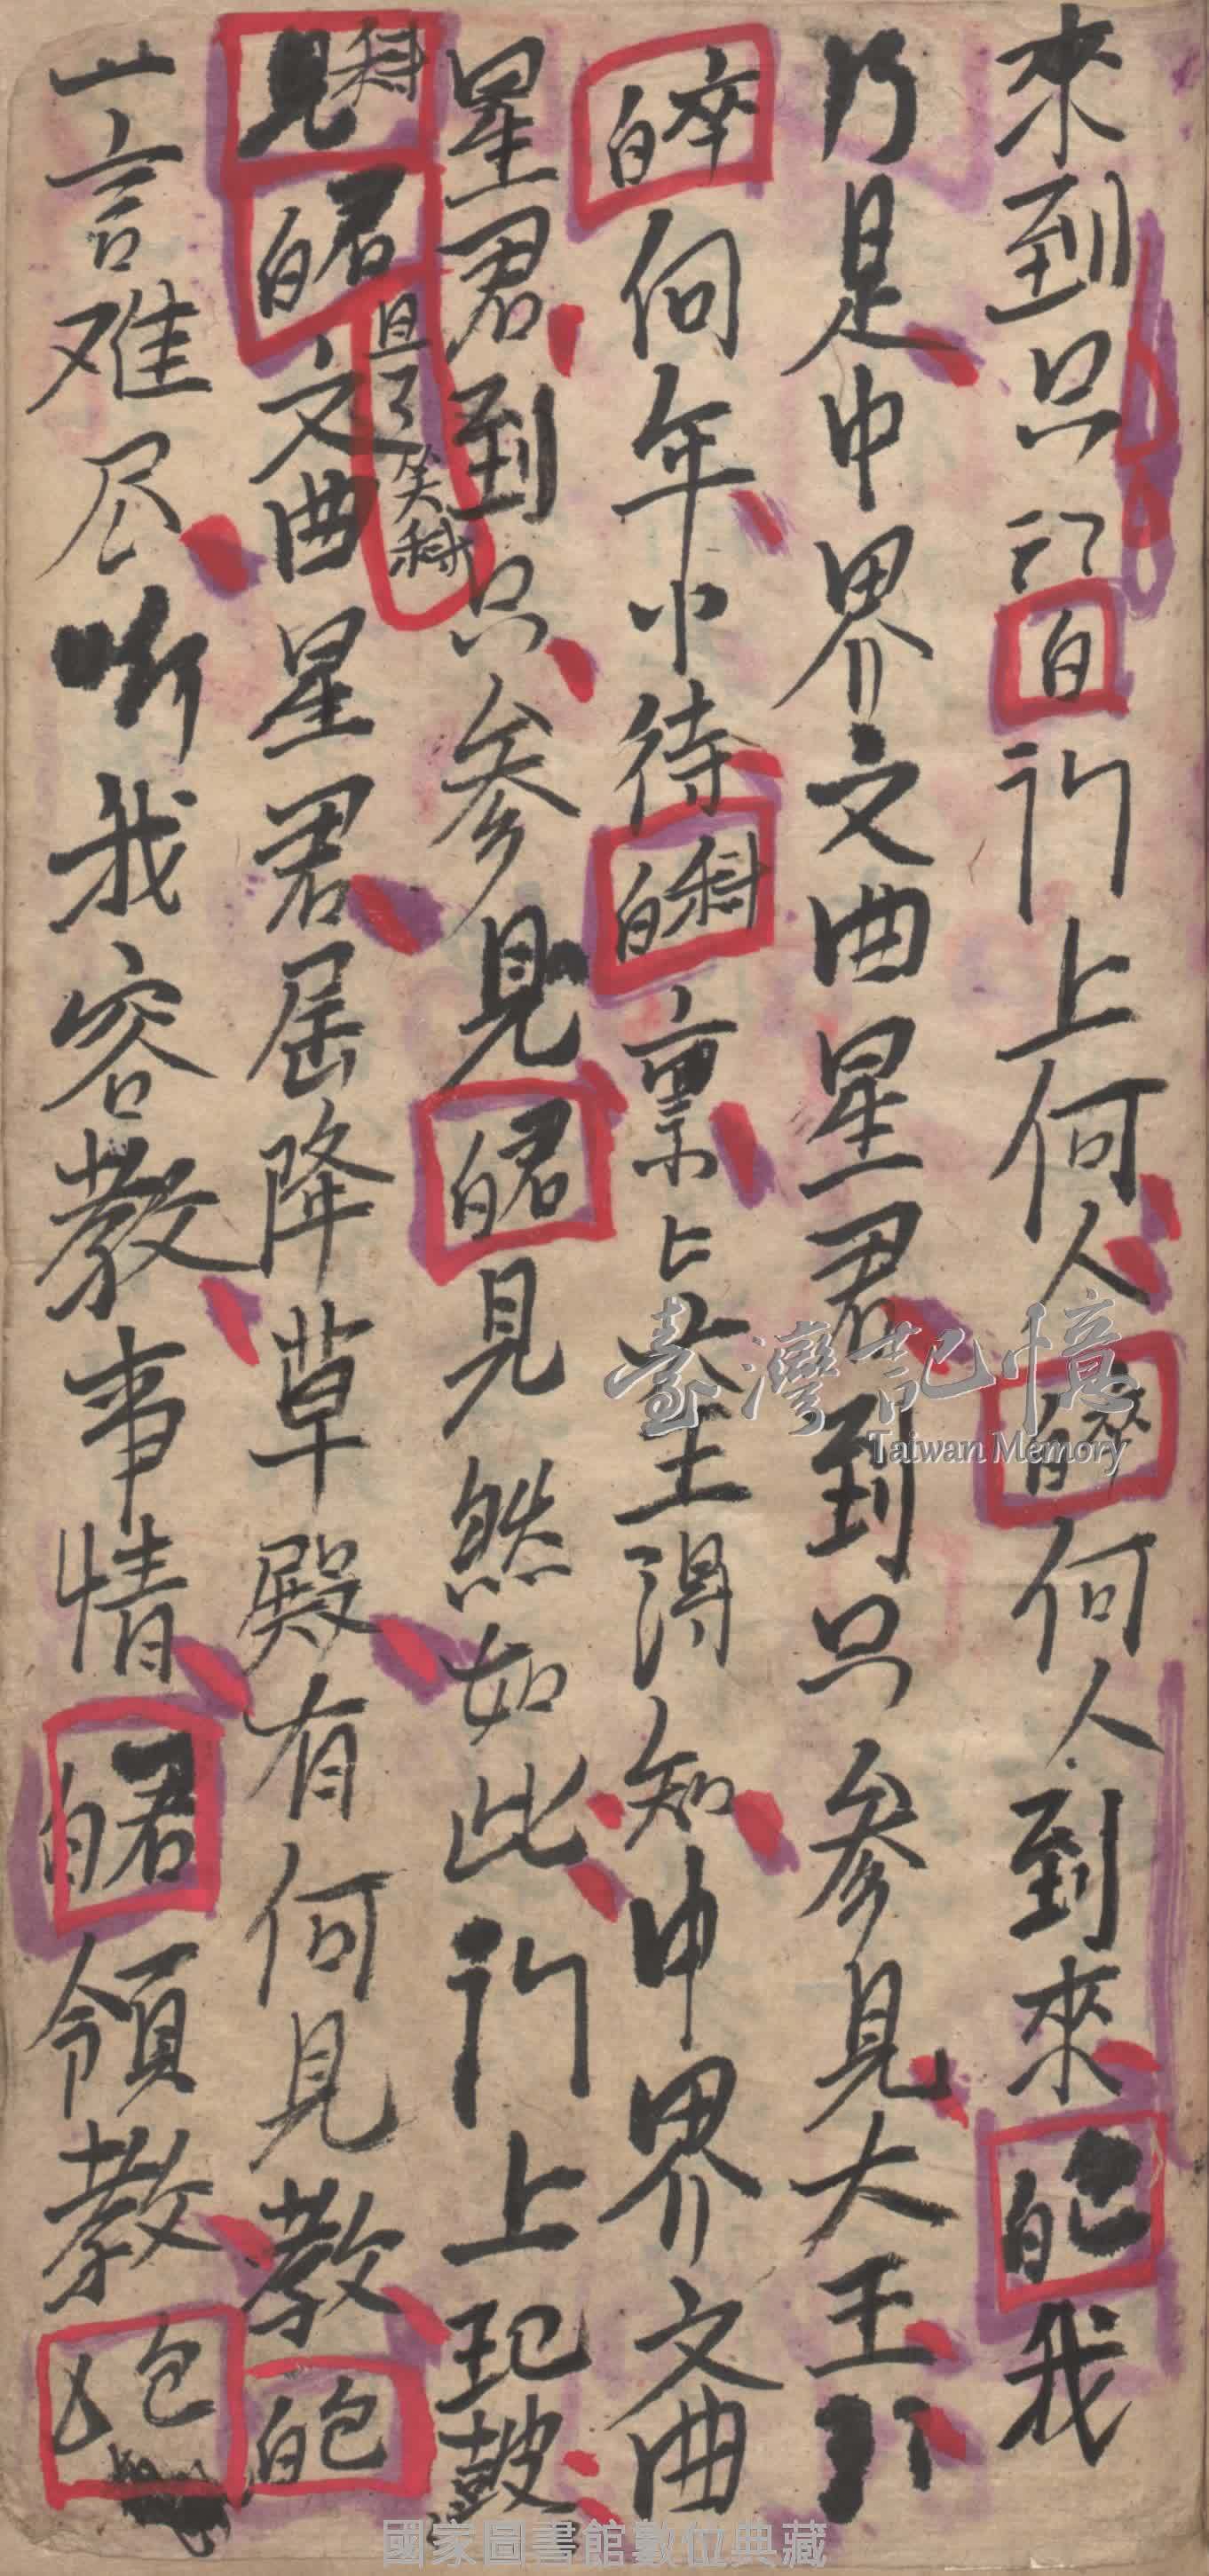 來到只 白 门上何人 卒白 何人到來 包白 我
乃是中界文曲星君到只參見大王
卒白 伺年小待 科白 稟上 坐 王得知中界文曲
星君到只參見 君白 見然如此门上 鼓
見科 君白 且 笑科 文曲星君屈降草殿有何見教 包白
一言难尽 听我容教事情 君白 領教 包
臺灣記憶
Taiwan Memory
國家圖書館數位典藏